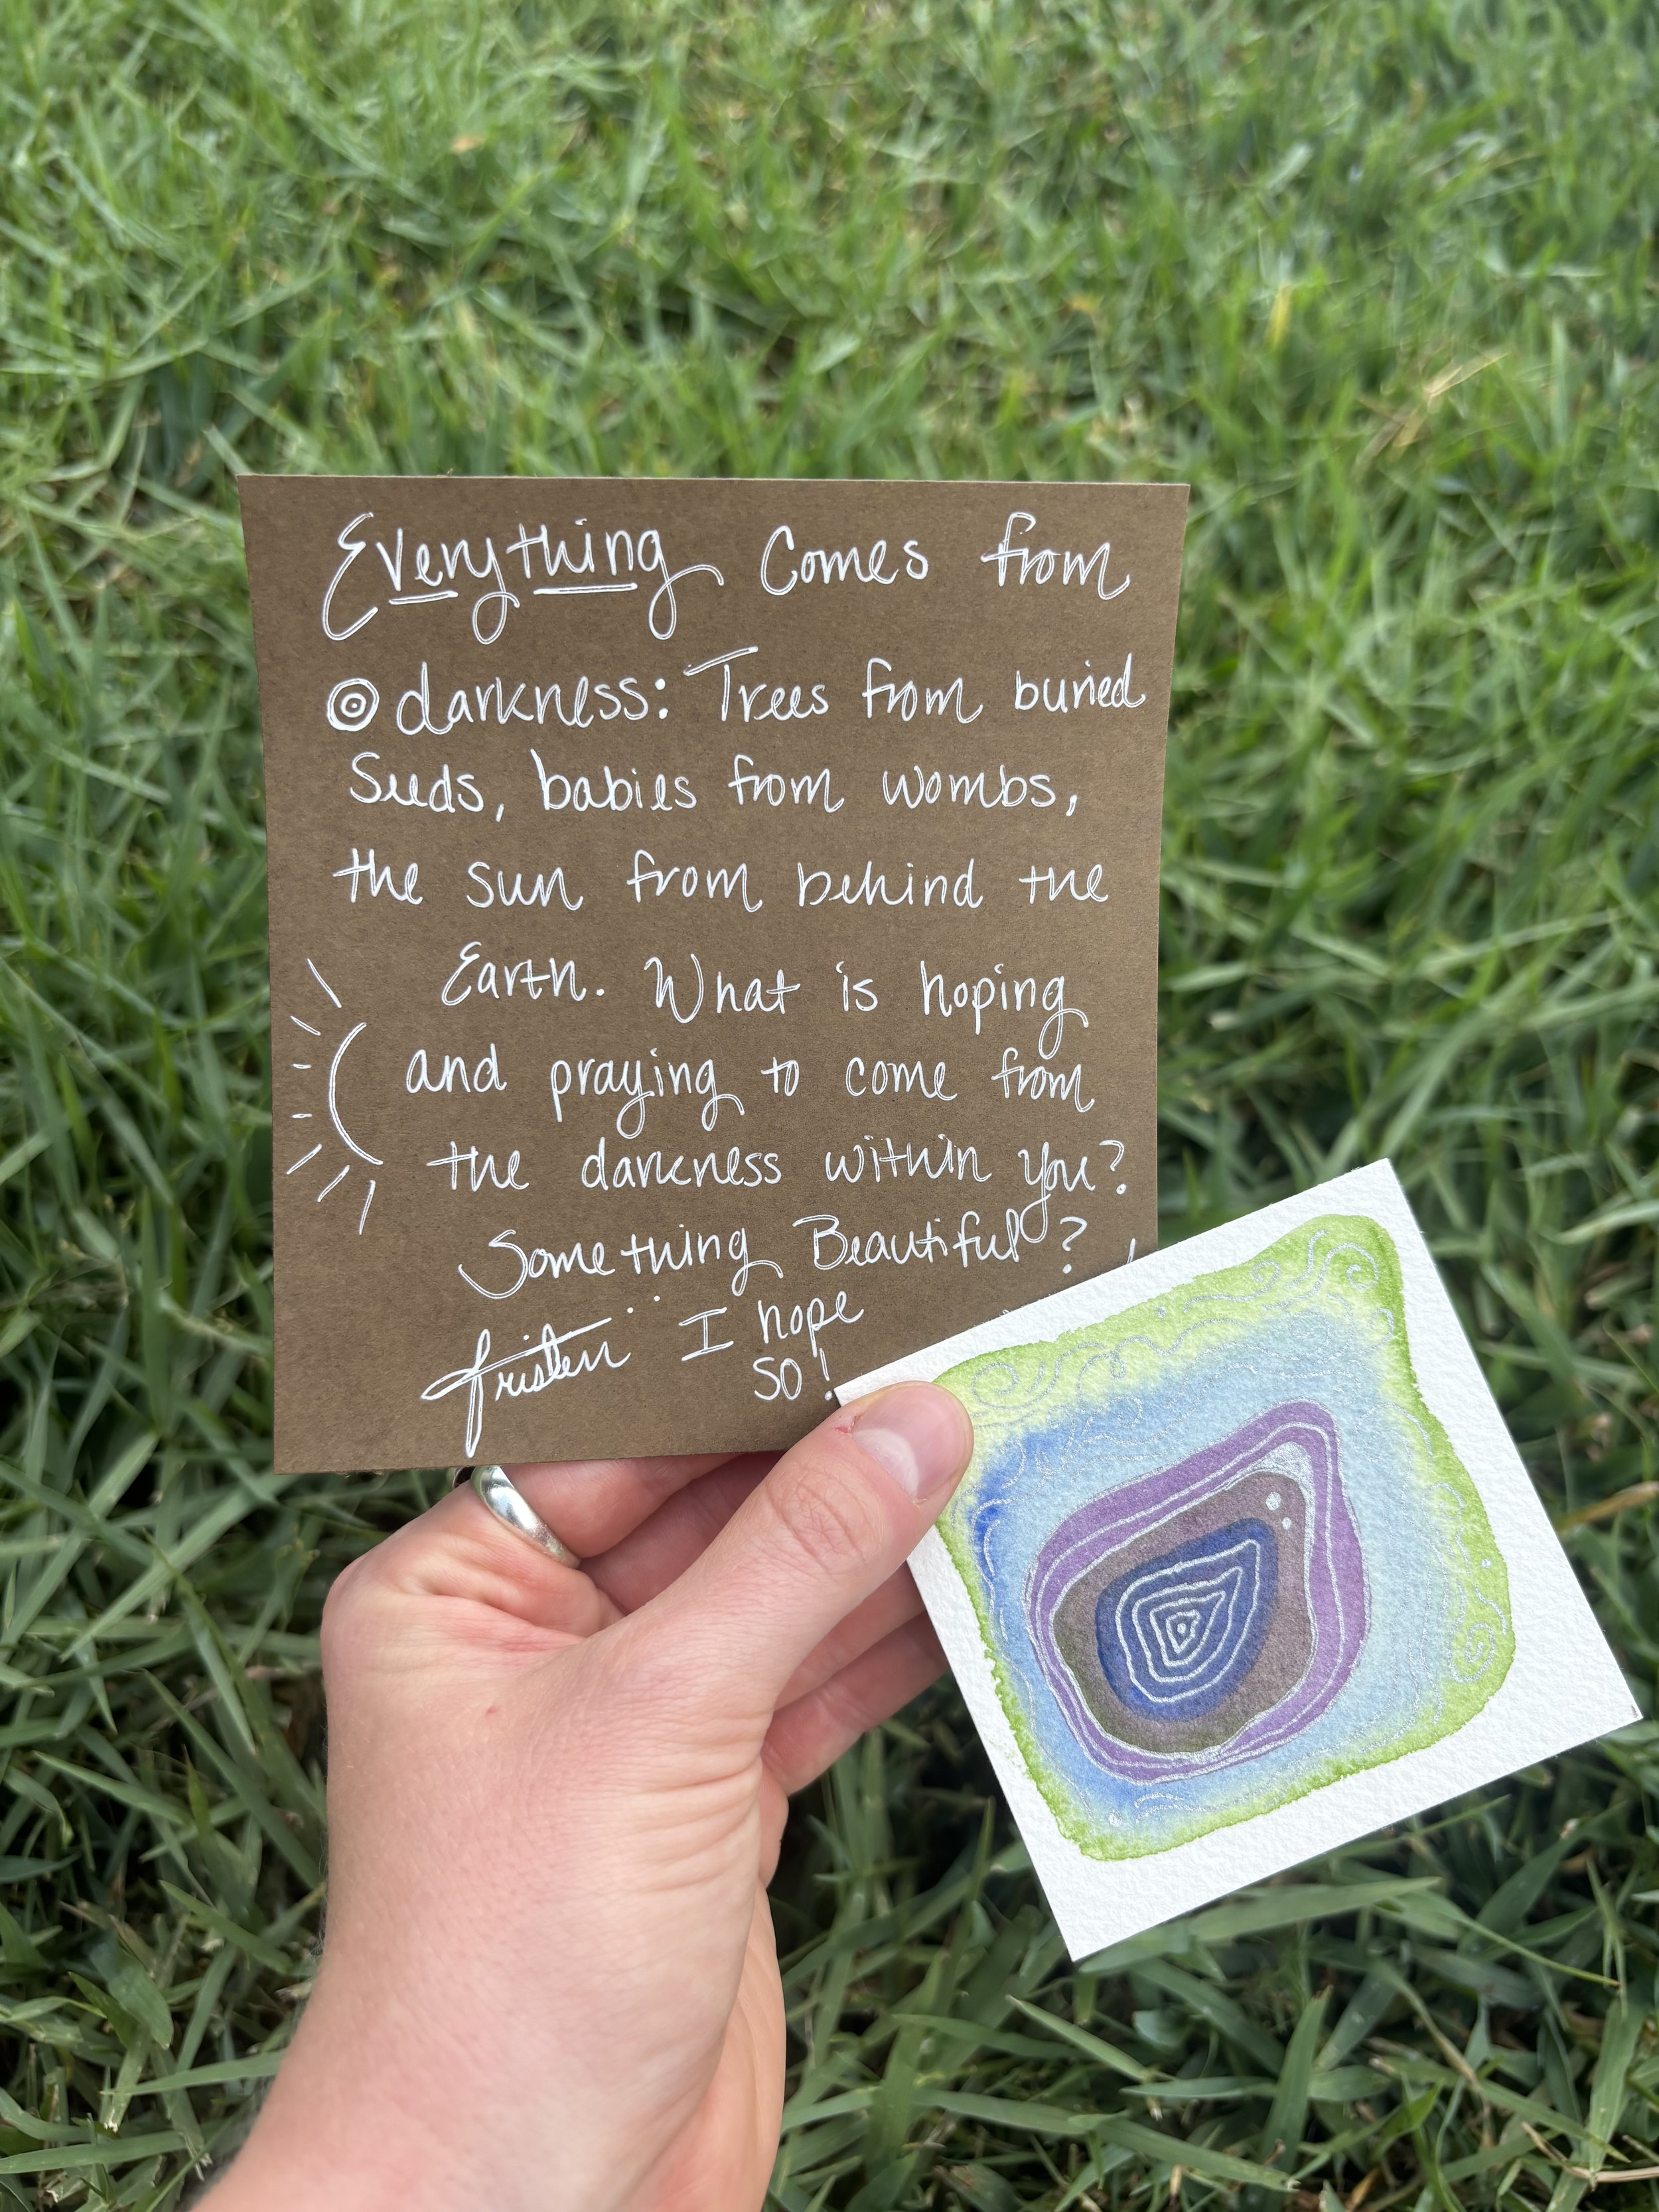 Everything Comes from
darkness: Trees from buried
Seeds, babies from wombs,
the sun from behind the
Earth. What is hoping
and praying to come from
the darkness within you?
Something Beautiful?
I hope
so!